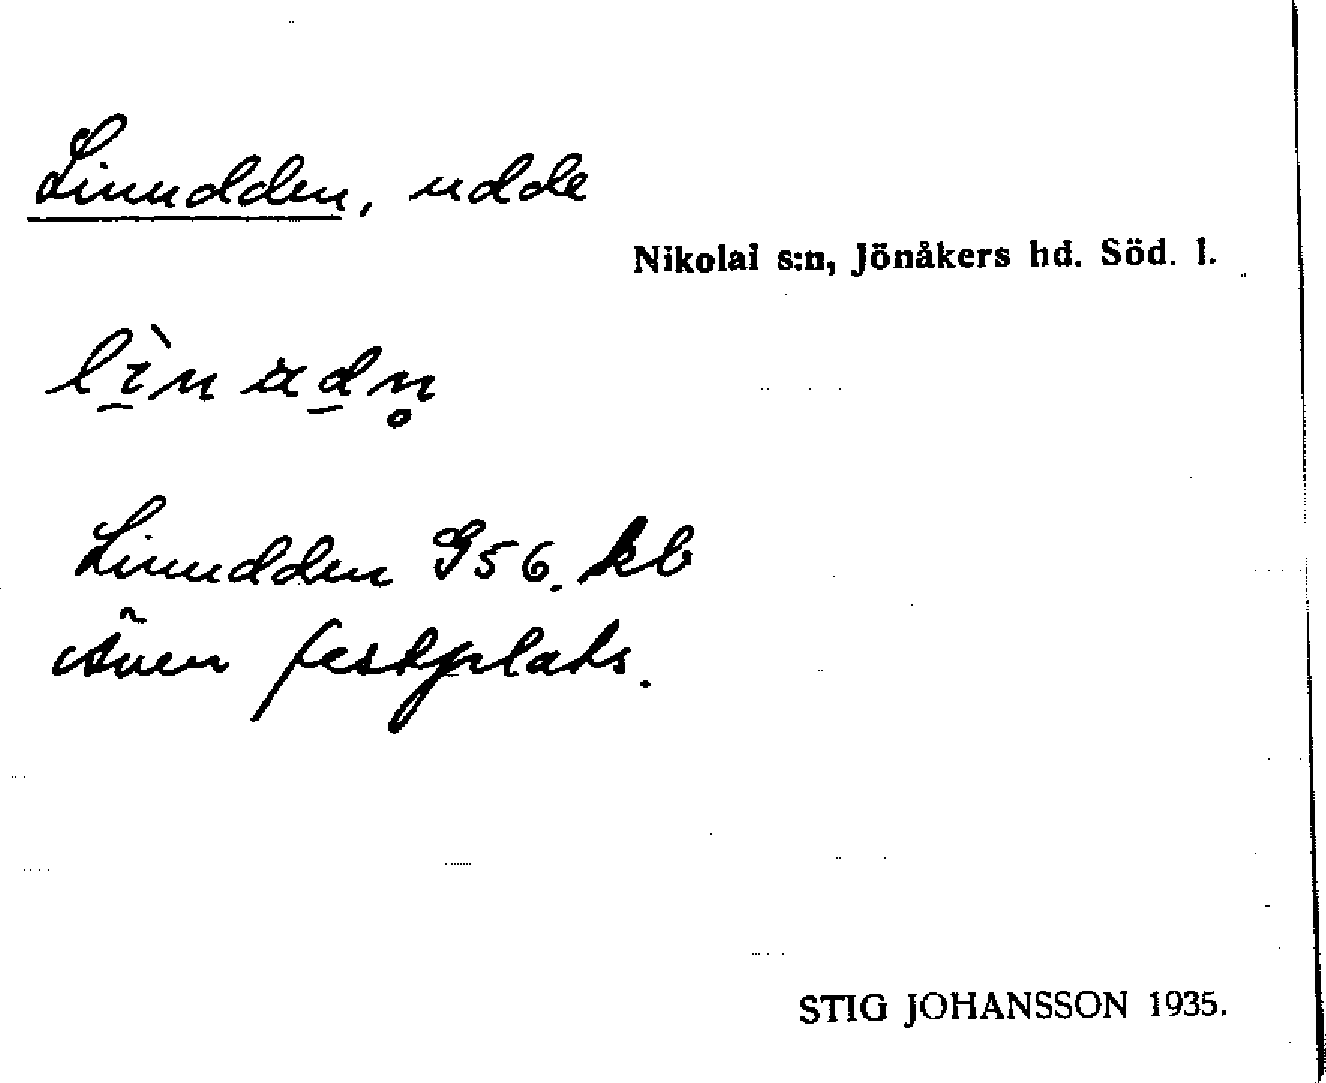 Linudden, udde
Nikolai s:n, Jönåkers hd. Söd. l.
lìnudn̥
Linudden G56. kb
Även festplats.
STIG JOHANSSON 1935.